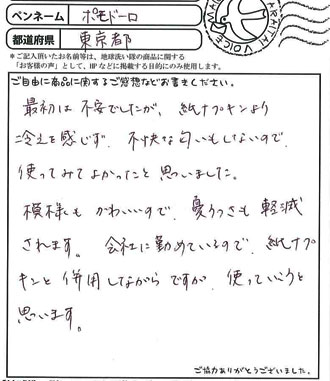 ペンネーム ポモドーロ
都道府県 東京都
＊ご記入頂いたお名前等は、地球洗い隊の商品に関する
「お客様の声」として、HPなどに掲載する目的にのみ使用します。
ご自由に商品に関するご感想などお書きください。
最初は不安でしたが、紙ナプキンより
冷えを感じず、不快な匂いもしないので、
使ってみてよかったと思いました。
模様も かわいいので、憂うつさも 軽減
されます。 会社に勤めているので、紙ナプ
キンと 併用しながら ですが、使っていこうと
思います。
ご協力ありがとうございました。